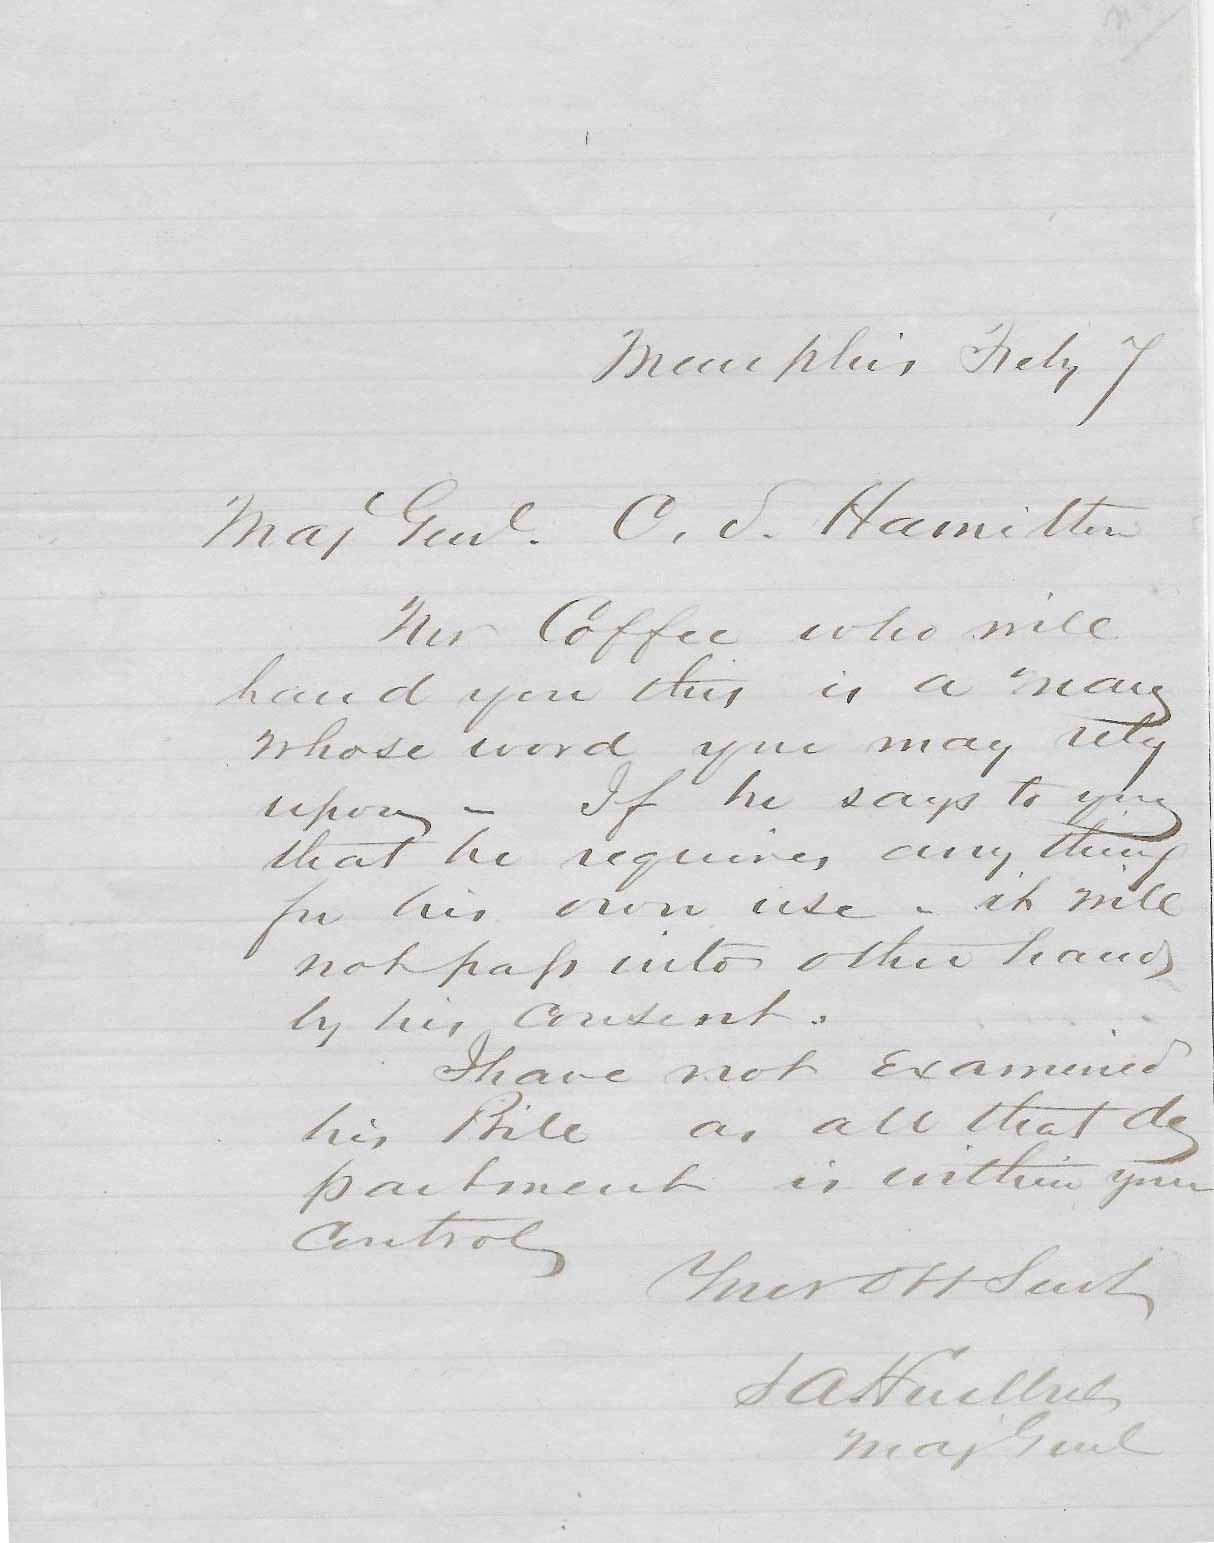 Memphis Feby 7
Maj Genl. C. S. Hamilton
Mr Coffee who will
hand you this is a man
whose word you may rely
upon - If he says to you
that he requires any thing
for his own use - it will
not pass into other hands
by his consent.
I have not examined
his Bill as all that de
partment is within your
control
Your Obt Servt
S A Hurlbut
Maj Genl